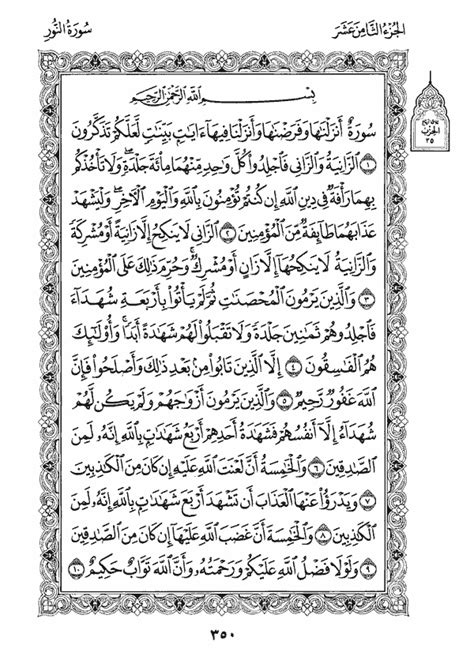 الجزء الثامن عشر
سورة النور
بسم الله الرحمن الرحيم
سُورَةٌ أَنزَلْنَٰهَا وَفَرَضْنَٰهَا وَأَنزَلْنَا فِيهَآ ءَايَٰتٍۭ بَيِّنَٰتٍ لَّعَلَّكُمْ تَذَكَّرُونَ
١ ٱلزَّانِيَةُ وَٱلزَّانِى فَٱجْلِدُوا۟ كُلَّ وَٰحِدٍ مِّنْهُمَا مِا۟ئَةَ جَلْدَةٍ وَلَا تَأْخُذْكُم
بِهِمَا رَأْفَةٌ فِى دِينِ ٱللَّهِ إِن كُنتُمْ تُؤْمِنُونَ بِٱللَّهِ وَٱلْيَوْمِ ٱلْءَاخِرِ وَلْيَشْهَدْ
عَذَابَهُمَا طَآئِفَةٌ مِّنَ ٱلْمُؤْمِنِينَ ٢ ٱلزَّانِى لَا يَنكِحُ إِلَّا زَانِيَةً أَوْ مُشْرِكَةً
وَٱلزَّانِيَةُ لَا يَنكِحُهَآ إِلَّا زَانٍ أَوْ مُشْرِكٌ وَحُرِّمَ ذَٰلِكَ عَلَى ٱلْمُؤْمِنِينَ
٣ وَٱلَّذِينَ يَرْمُونَ ٱلْمُحْصَنَٰتِ ثُمَّ لَمْ يَأْتُوا۟ بِأَرْبَعَةِ شُهَدَآءَ
فَٱجْلِدُوهُمْ ثَمَٰنِينَ جَلْدَةً وَلَا تَقْبَلُوا۟ لَهُمْ شَهَٰدَةً أَبَدًا وَأُو۟لَٰٓئِكَ
هُمُ ٱلْفَٰسِقُونَ ٤ إِلَّا ٱلَّذِينَ تَابُوا۟ مِنۢ بَعْدِ ذَٰلِكَ وَأَصْلَحُوا۟ فَإِنَّ
ٱللَّهَ غَفُورٌ رَّحِيمٌ ٥ وَٱلَّذِينَ يَرْمُونَ أَزْوَٰجَهُمْ وَلَمْ يَكُن لَّهُمْ
شُهَدَآءُ إِلَّآ أَنفُسُهُمْ فَشَهَٰدَةُ أَحَدِهِمْ أَرْبَعُ شَهَٰدَٰتٍۭ بِٱللَّهِ إِنَّهُۥ لَمِنَ
ٱلصَّٰدِقِينَ ٦ وَٱلْخَٰمِسَةُ أَنَّ لَعْنَتَ ٱللَّهِ عَلَيْهِ إِن كَانَ مِنَ ٱلْكَٰذِبِينَ
٧ وَيَدْرَؤُا۟ عَنْهَا ٱلْعَذَابَ أَن تَشْهَدَ أَرْبَعَ شَهَٰدَٰتٍۭ بِٱللَّهِ إِنَّهُۥ لَمِنَ
ٱلْكَٰذِبِينَ ٨ وَٱلْخَٰمِسَةَ أَنَّ غَضَبَ ٱللَّهِ عَلَيْهَآ إِن كَانَ مِنَ ٱلصَّٰدِقِينَ
٩ وَلَوْلَا فَضْلُ ٱللَّهِ عَلَيْكُمْ وَرَحْمَتُهُۥ وَأَنَّ ٱللَّهَ تَوَّابٌ حَكِيمٌ ١٠
الحزب
٣٥
٣٥٠